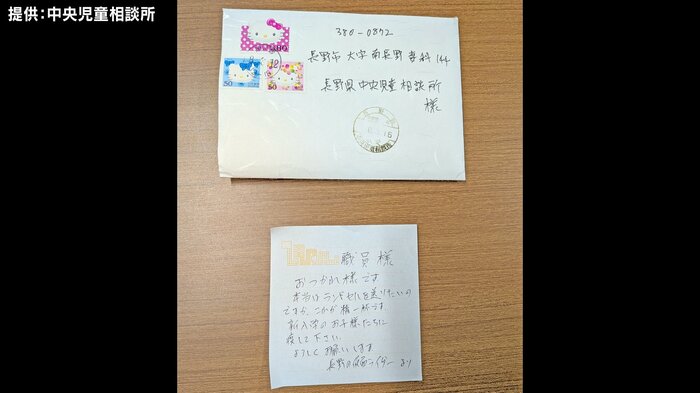 提供：中央児童相談所
380-0872
長野市大字南長野妻科144
長野県中央児童相談所
様
80
50
50
職員様
おつかれ様です
本当はランドセルを送りたいの
ですが、これが精一杯です。
新入学のお子様たちに
渡して下さい。
よろしくお願いします
長野の仮面ライダーより